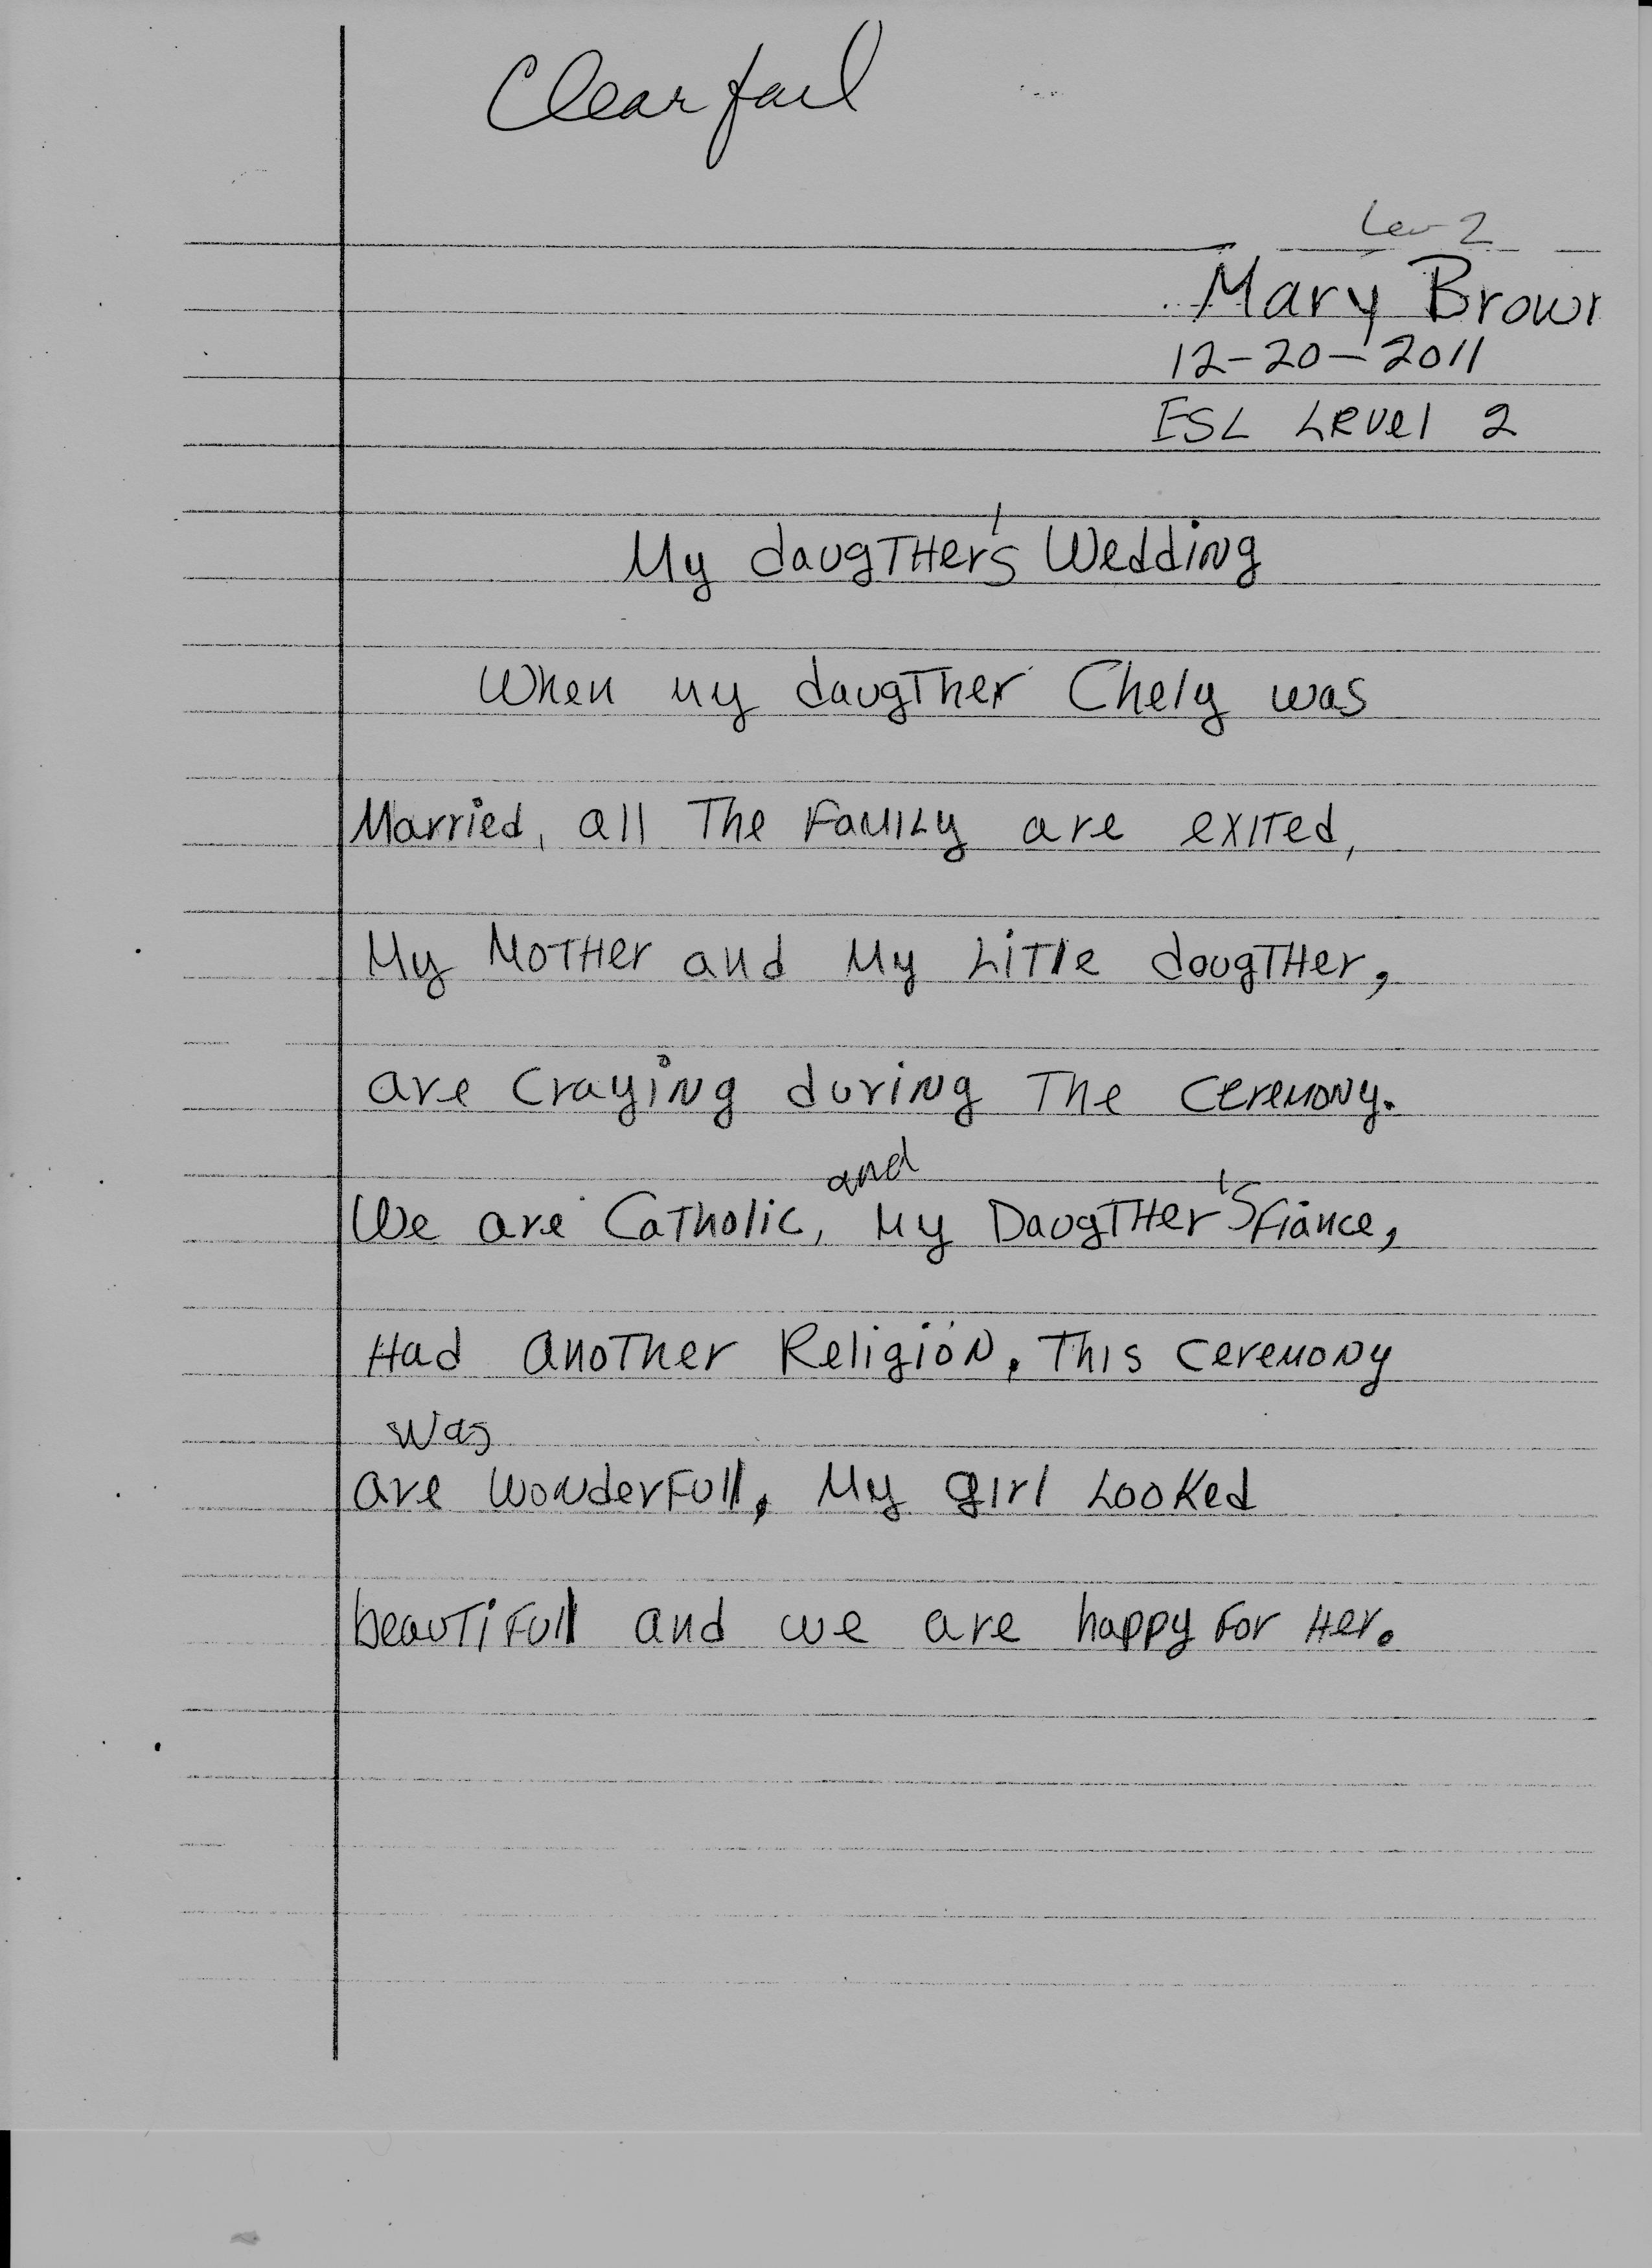 Clear fail
Lev 2
Mary Brown
12-20-2011
ESL Level 2
My daugTHer's Wedding
When my daugTher Chely was
Married, all The FamiLy are exiTed,
My MoTHer and My LiTTle dougTHer,
are Craying during The Ceremony.
and
We are CaTholic, My DaugTHer's fiánce,
Had anoTher Religión. This Ceremony
was
are WonderFull, My girl Looked
beauTiFull and we are happy For Her.